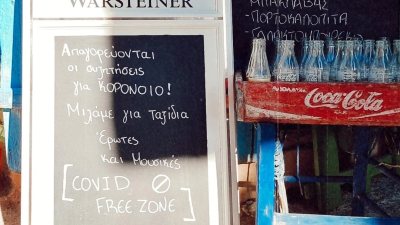 WARSTEINER
Απαγορεύονται
οι συζητήσεις
για ΚΟΡΟΝΟΙΟ!
Μιλάμε για ταξίδια
Έρωτες
και Μουσικές
[COVID
FREE ZONE]
ΜΠΑΚΛΑΒΑΣ
-ΠΟΡΤΟΚΑΛΟΠΙΤΑ
-ΓΑΛΑΚΤΟΜΠΟΥΡΕΚΟ
Coca-Cola